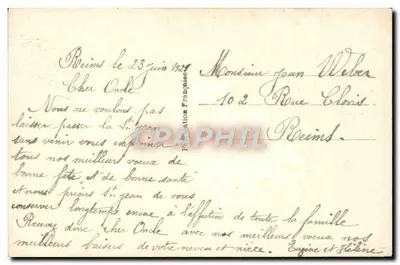 Reims le 23 juin 1929
Cher Oncle
Nous ne voulons pas
laisser passer la St Jean
sans venir vous exprimer
tous nos meilleurs voeux de
bonne fête et de bonne santé
et nous prions St jean de vous
conserver longtemps encore à l'affection de toute la famille
Recevez donc cher Oncle avec nos meilleurs voeux nos
meilleurs baisers de votre neveu et nièce. Eugène et Hélène
Monsieur jean Weber
102 Rue Clovis
Reims.
Française
CPARAMA